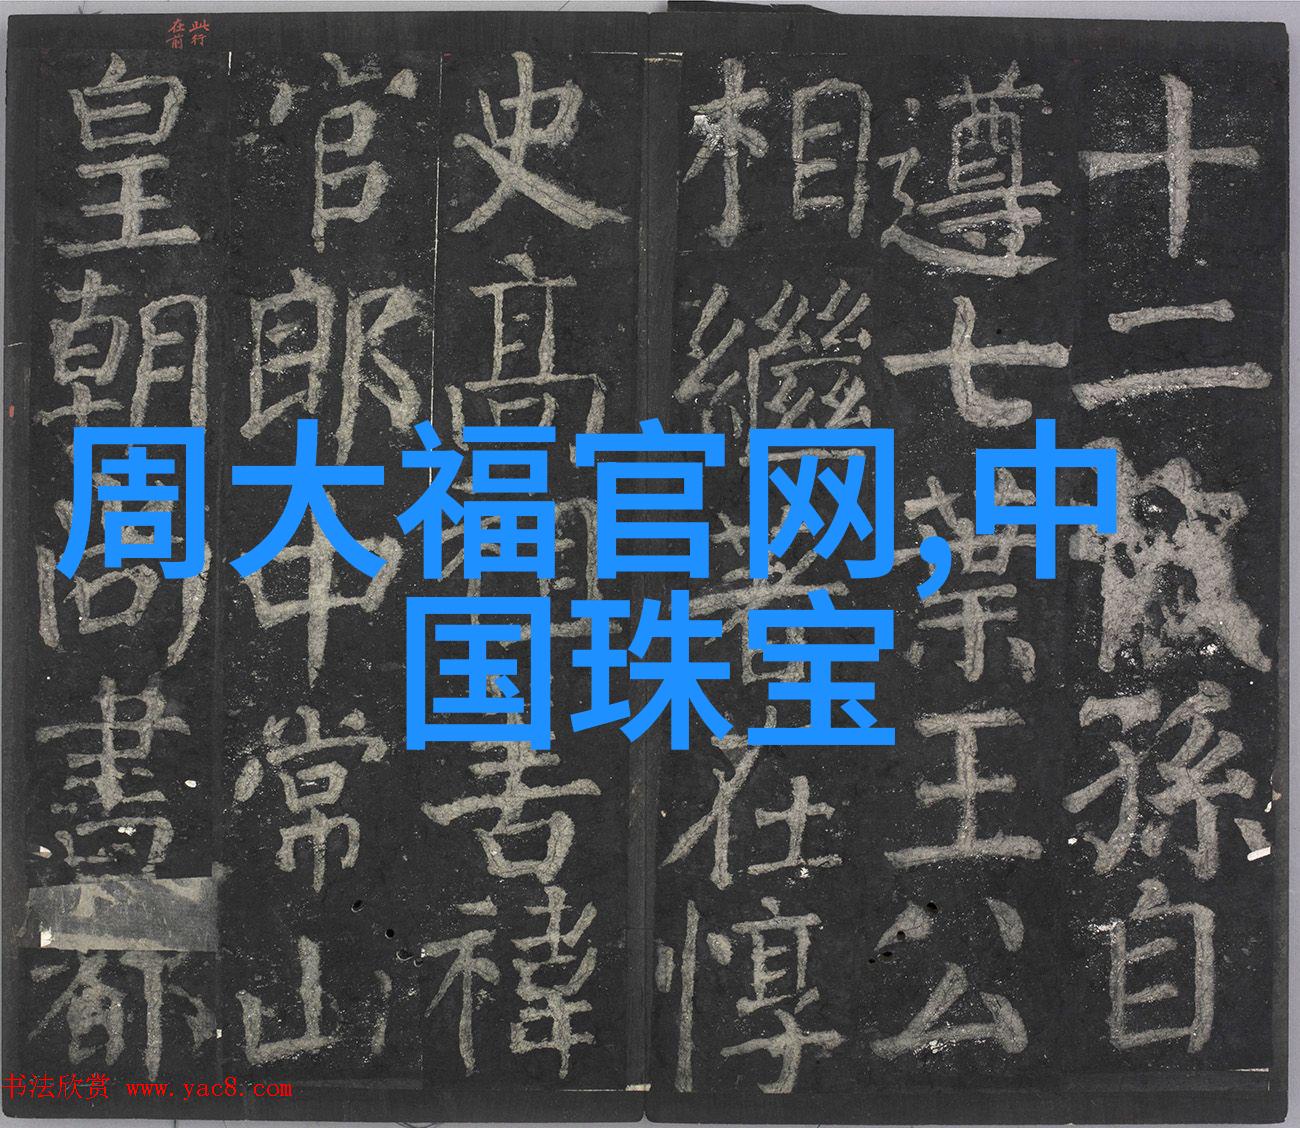 此行
在前
十二葉孫自
遵七葉王公
相繼並在惇
史高
官郎中常山
皇朝尚書都
周大福官网,中
国珠宝
书法欣赏 www.yac8.com